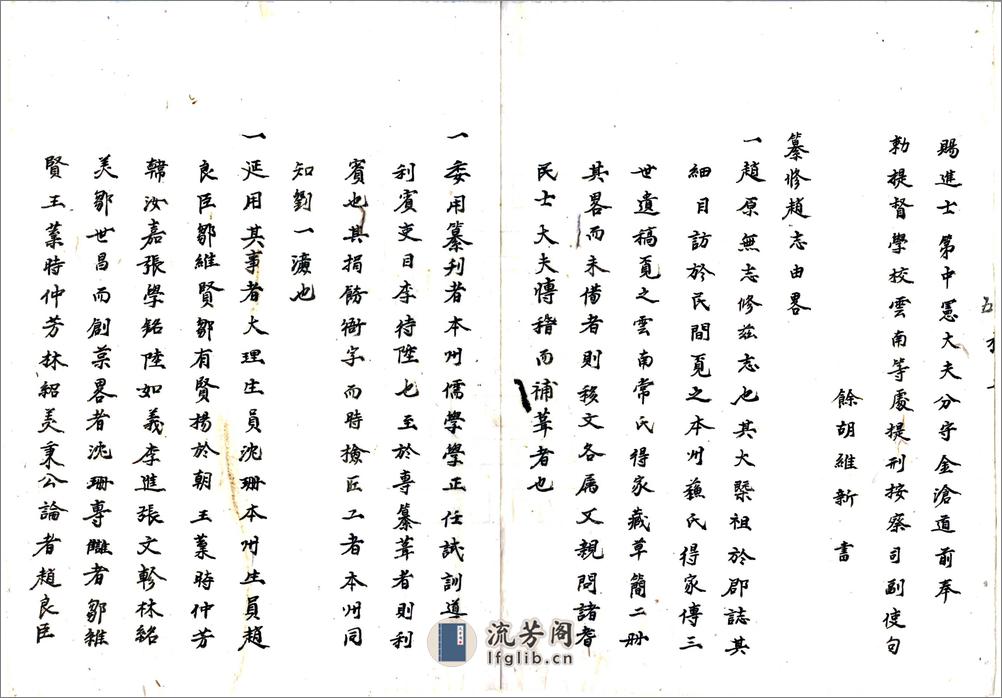 賜進士第中憲大夫分守金滄道前奉
勅提督學校雲南等處提刑按察司副使句
餘胡維新書
纂修趙志由畧
一趙原無志修茲志也其大槩祖於郡誌其
細目訪於民間覓之本州蘓氏得家傳三
世遺稿覓之雲南常氏得家藏草簡二册
其畧而未備者則移文各屬又親問諸耆
民士大夫慱稽而補葺者也
一委用纂刋者本州儒學學正任試訓導
利賓吏目李待陞七至於專纂葺者則利
賓也其捐餙衙字而時撿匠工者本州同
知劉一瀛也
一延用其事者大理生員沈珊本州生員趙
良臣鄒維賢鄒有賢揚於朝王葉時仲芳
韓汝嘉張學銘陸如義李進張文軫林紹
美鄒世昌而創葉畧者沈珊專讎者鄒維
賢王葉時仲芳林紹美秉公論者趙良臣
五
流芳阁
lfglib.cn